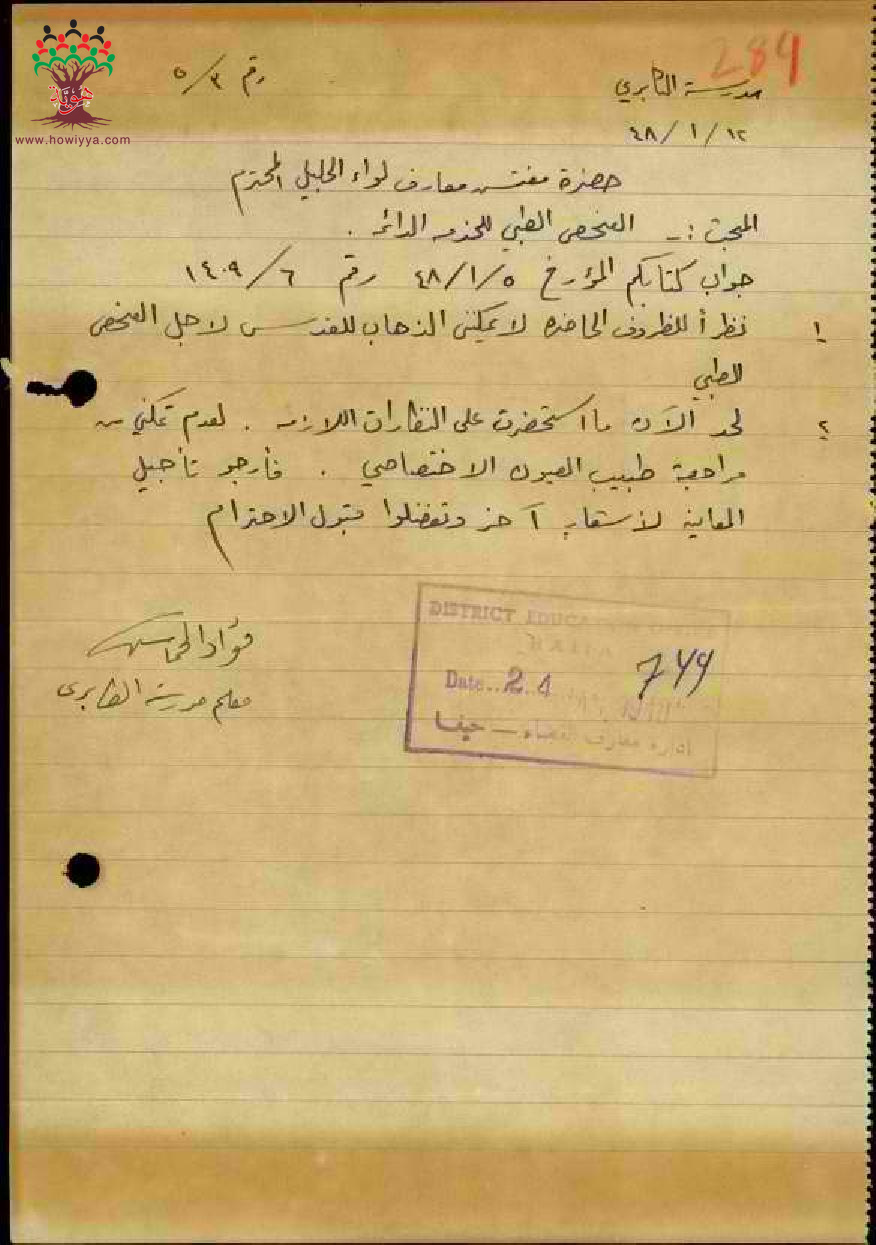 284
مدرسة الكابري
رقم ٣/٥
١٢/١/٤٨
هوية
www.howiyya.com
حضرة مفتش معارف لواء الجليل المحترم
المبحث :ـ الفحص الطبي للخدمه الدائمه .
جواب كتابكم المؤرخ ٥/١/٤٨ رقم ٦/١٤٠٩
١ نظراً للظروف الحاضره لا يمكنني الذهاب للقدس لاجل الفحص
الطبي
٢ لحد الآن ما استحضرت على النظارات اللازمه . لعدم تمكني من
مراجعة طبيب العيون الاختصاصي . فأرجو تأجيل
المعاينه لأشعار آخر وتفضلوا بقبول الاحترام
فؤاد
معلم مدرسة الكابري
DISTRICT EDUCATION OFFICE
HAIFA
744
Date 24
ادارة معارف القضاء – حيفا